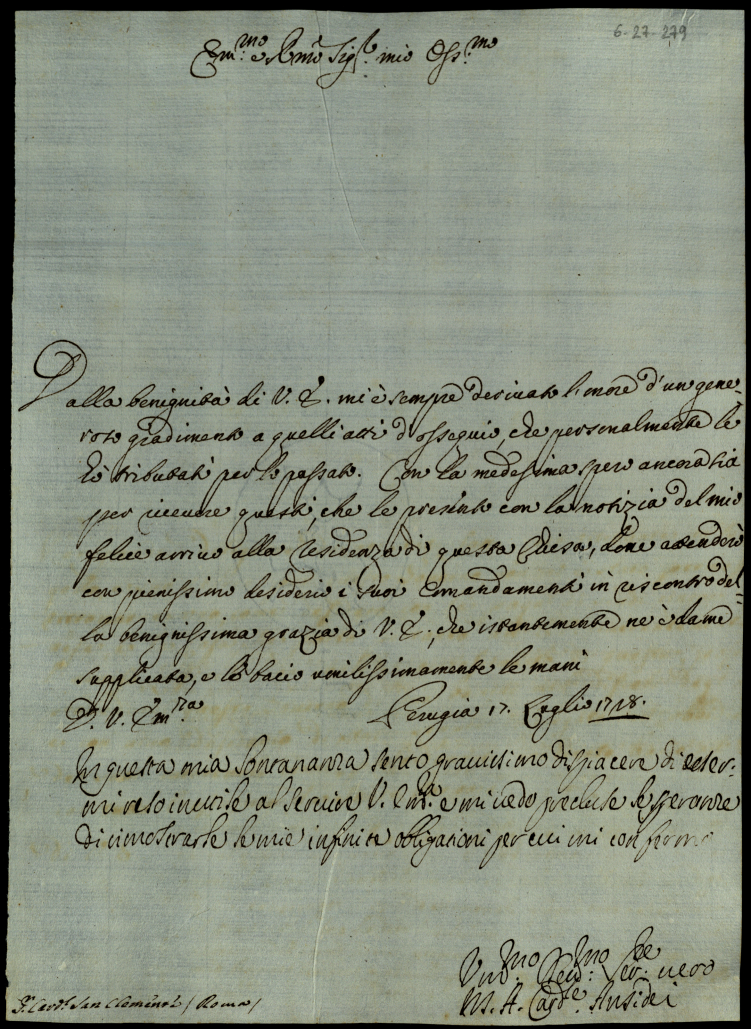 6-27-279
Em.mo e Rmo Sig.re mio Oss.mo
Dalla benignità di V. E. mi è sempre derivato l'onore d'un gene=
roso gradimento a quelli atti d'ossequio, che personalmente le
hò tributati per lo passato. Con la medesima spero ancora sia
per ricevere questi, che le presento con la notizia del mio
felice arrivo alla residenza di questa Chiesa, dove attenderò
con pienissimo desiderio i suoi Comandamenti in riscontro del=
la benignissima grazia di V. E., che istantemente ne è da me
supplicata, e le bacio umilissimamente le mani
D. V. Em.za Perugia 17. Luglio 1728.
In questa mia lontananza sento gravissimo dispiacere di esser=
mi reso inutile al servire V. Em.a e mi vedo precluse le speranze
di dimostrarle le mie infinite obligationi per cui mi confermo
Um.mo Dev.mo Ser.re vero
M. A. Card.e Ansidei
S.r Card.l San Clemente / Roma /